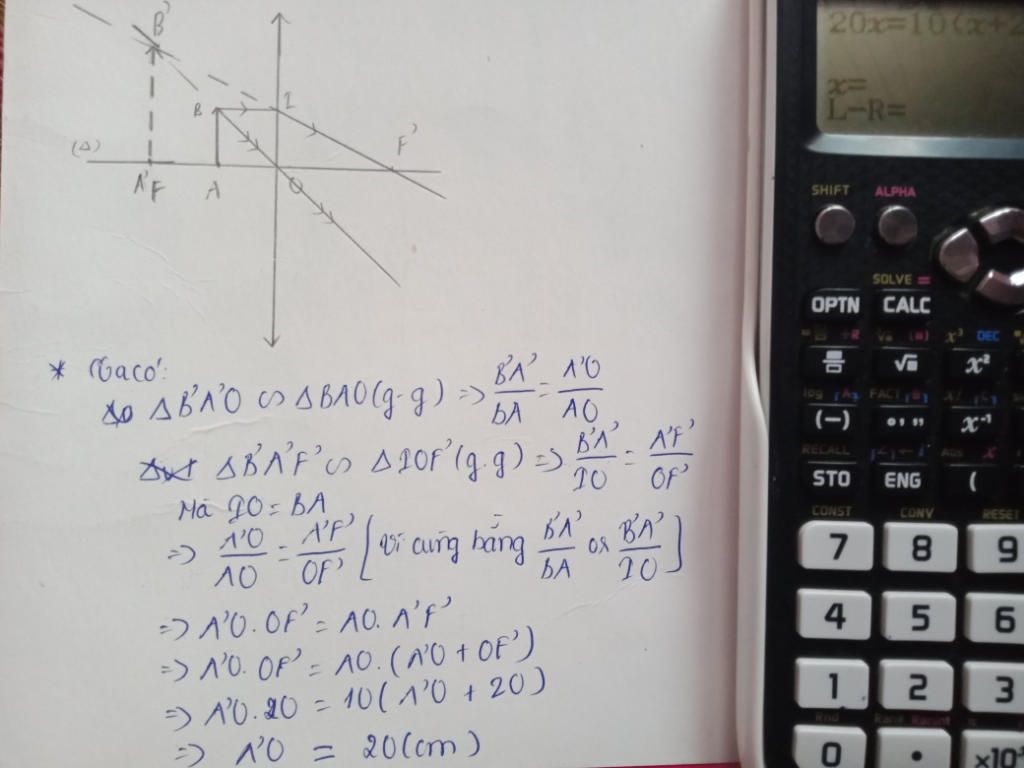 B'
B
I
F'
(Δ)
A'F
A
O
* Ta có:
ΔB'A'O ∽ ΔBAO (g-g) => B'A'/BA = A'O/AO
ΔB'A'F' ∽ ΔIOF' (g.g) => B'A'/IO = A'F'/OF'
Mà IO = BA
=> A'O/AO = A'F'/OF' [Vì cùng bằng B'A'/BA or B'A'/IO]
=> A'O. OF' = AO. A'F'
=> A'O. OF' = AO. (A'O + OF')
=> A'O. 20 = 10( A'O + 20 )
=> A'O = 20 (cm)
20x=10(x+2
x=
L-R=
SHIFT ALPHA
SOLVE =
OPTN CALC
x³ DEC
√ x²
(−) °,,, x⁻¹
RECALL
STO ENG (
CONST CONV RESET
7 8 9
4 5 6
1 2 3
0 . ×10